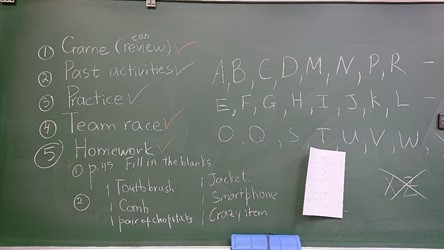 ① Game (review) ✓
can
② Past activities ✓
③ Practice ✓
④ Team race ✓
⑤ Homework ✓
① p.45 Fill in the blanks
② 1 Toothbrush
1 Comb
1 pair of chopsticks
1 Jacket
1 Smartphone
1 Crazy item
A, B, C, D, M, N, P, R –
E, F, G, H, I, J, K, L –
O, Q, S, T, U, V, W,
X Z